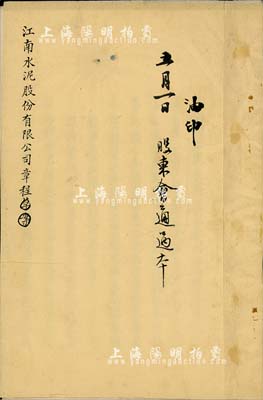 上海陽明拍賣
www.ymauction.com
油印
五月一日 股東會通過本
江南水泥股份有限公司章程
上海陽明拍賣
www.ymauction.com
上海陽明拍賣
www.ymauction.com